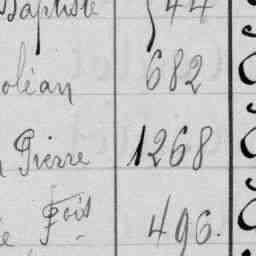 Baptiste 544
oléan 682
Pierre 1268
Fois 496.